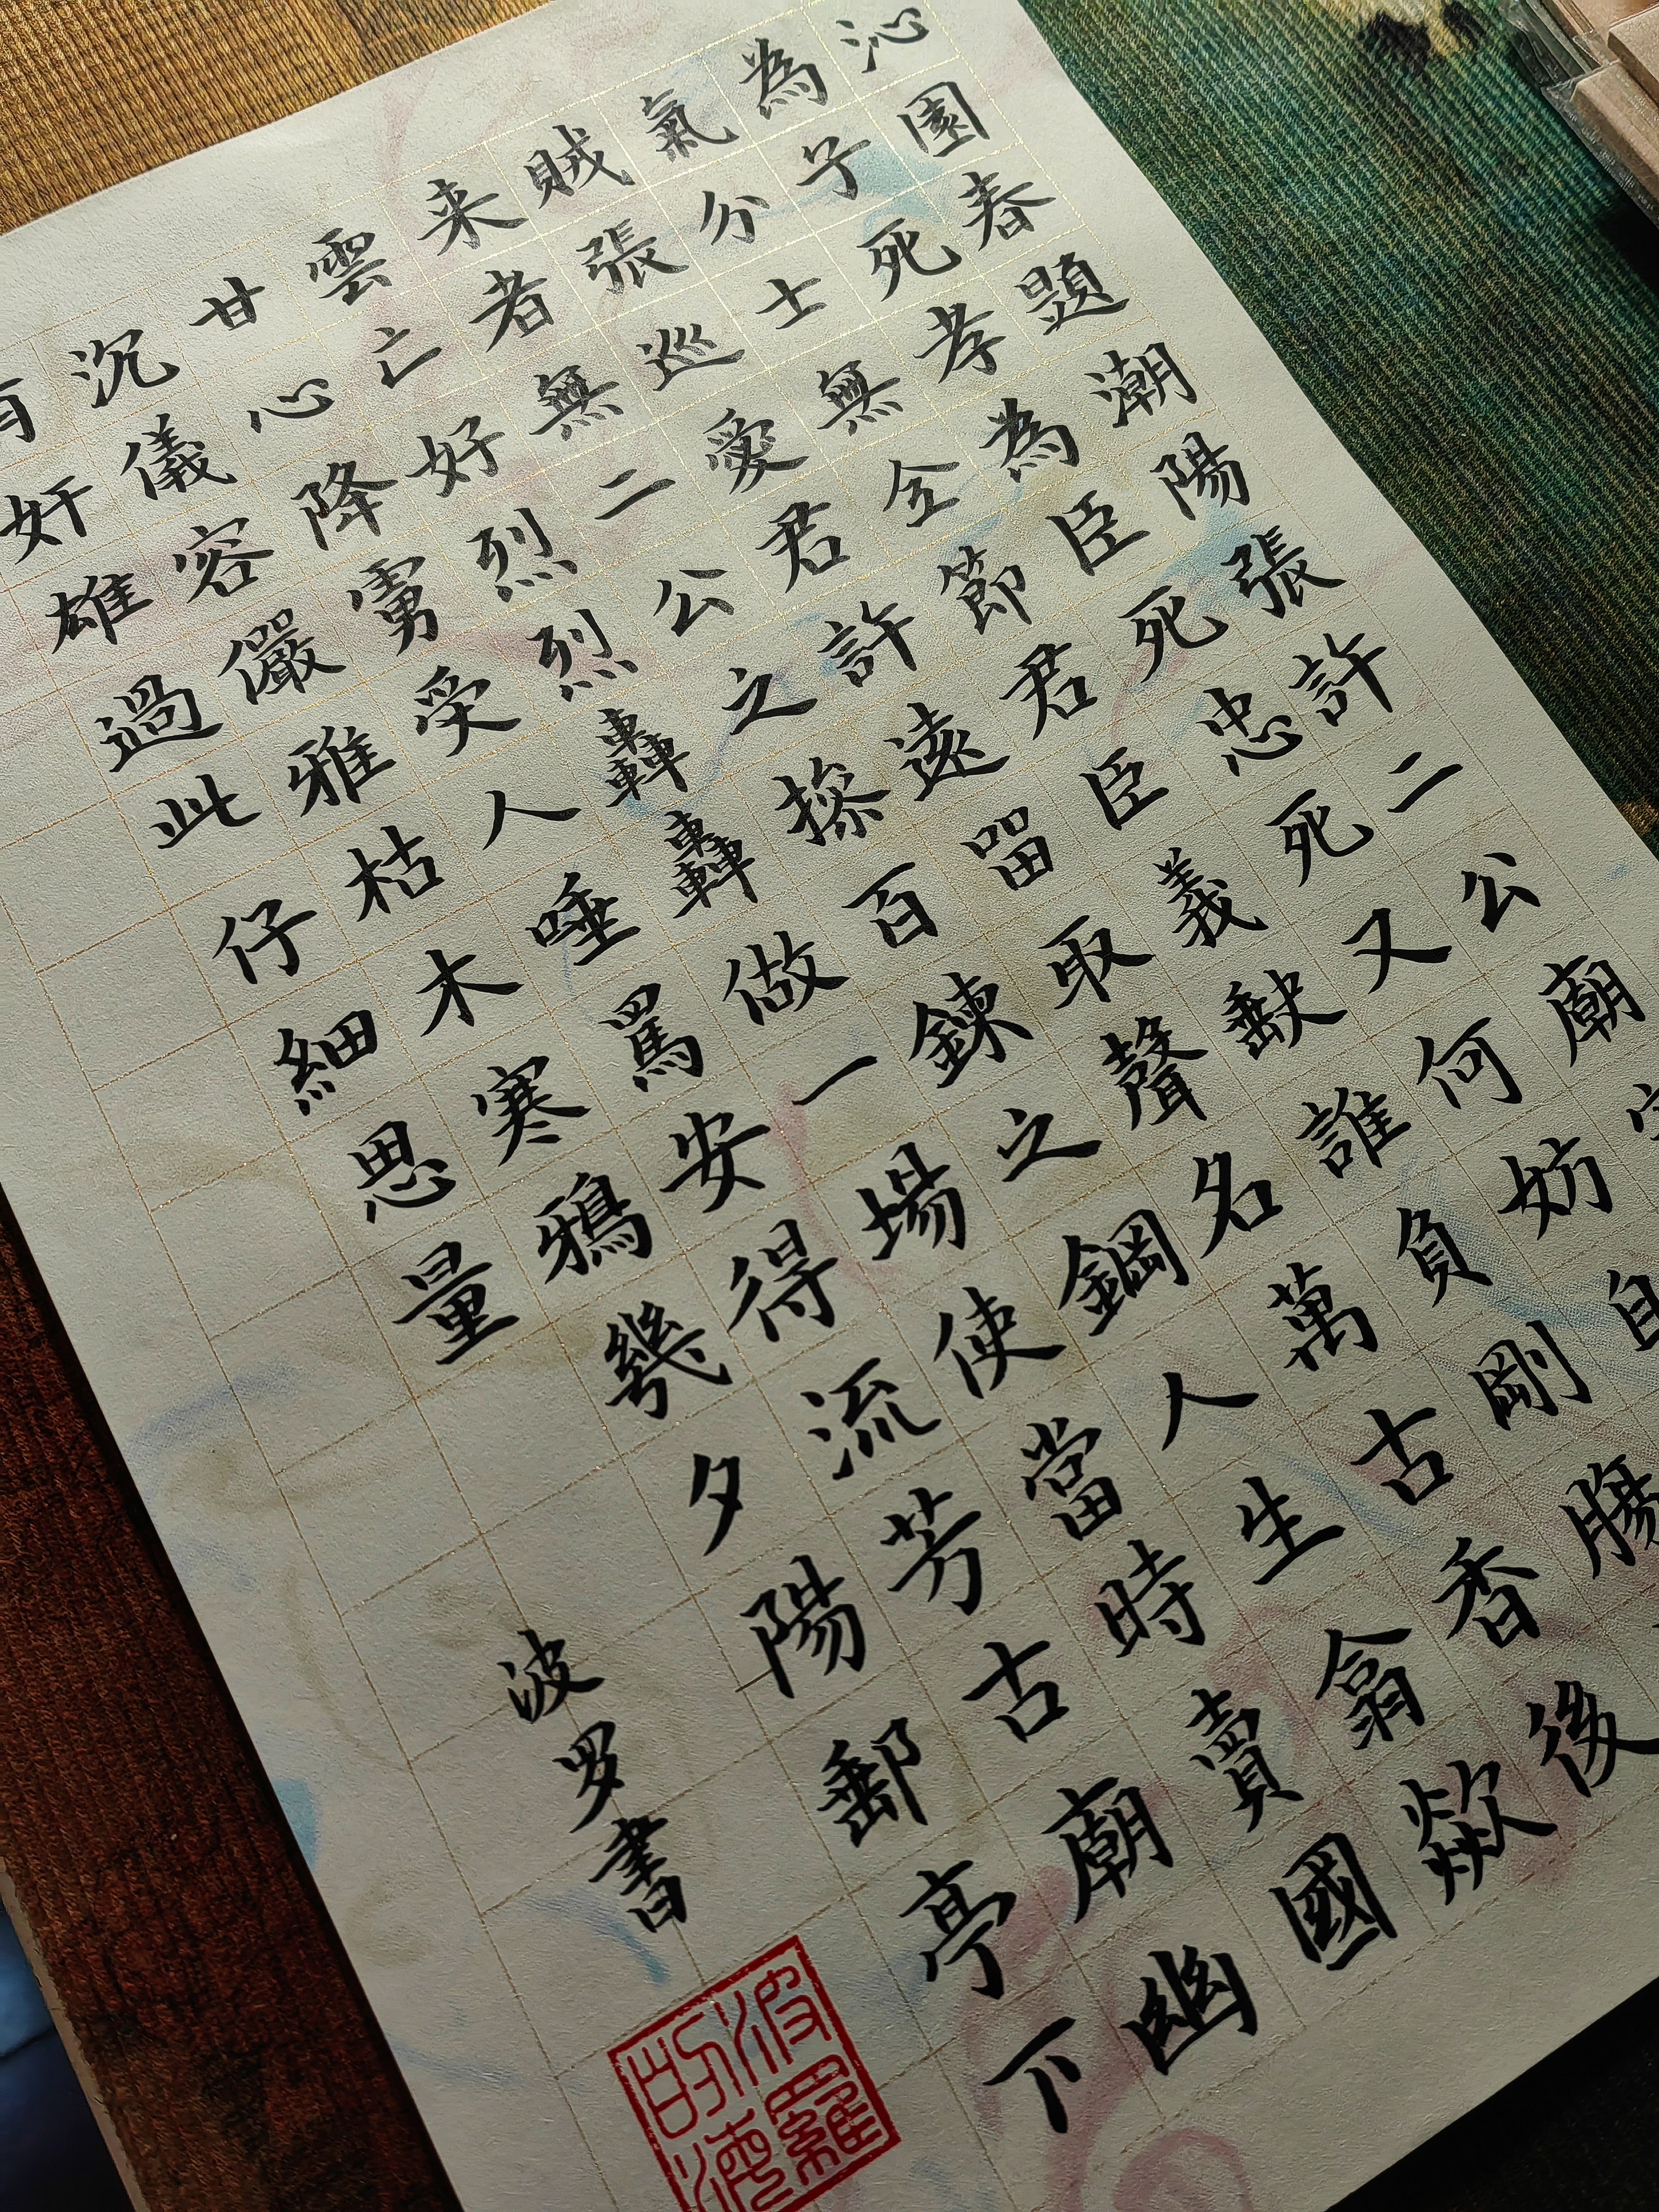 沁園春題潮陽張許二公廟
為子死孝為臣死忠死又何妨自
氣分士無全節君臣義缺誰負剛腸
賊張巡愛君許遠留取聲名萬古香後
来者無二公之操百鍊之鋼人生翕歘
雲亡好烈烈轟轟做一場使當時賣國
甘心降虜受人唾罵安得流芳古廟幽
沉儀容儼雅枯木寒鴉幾夕陽郵亭下
有奸雄過此仔細思量
波罗書
波羅
的